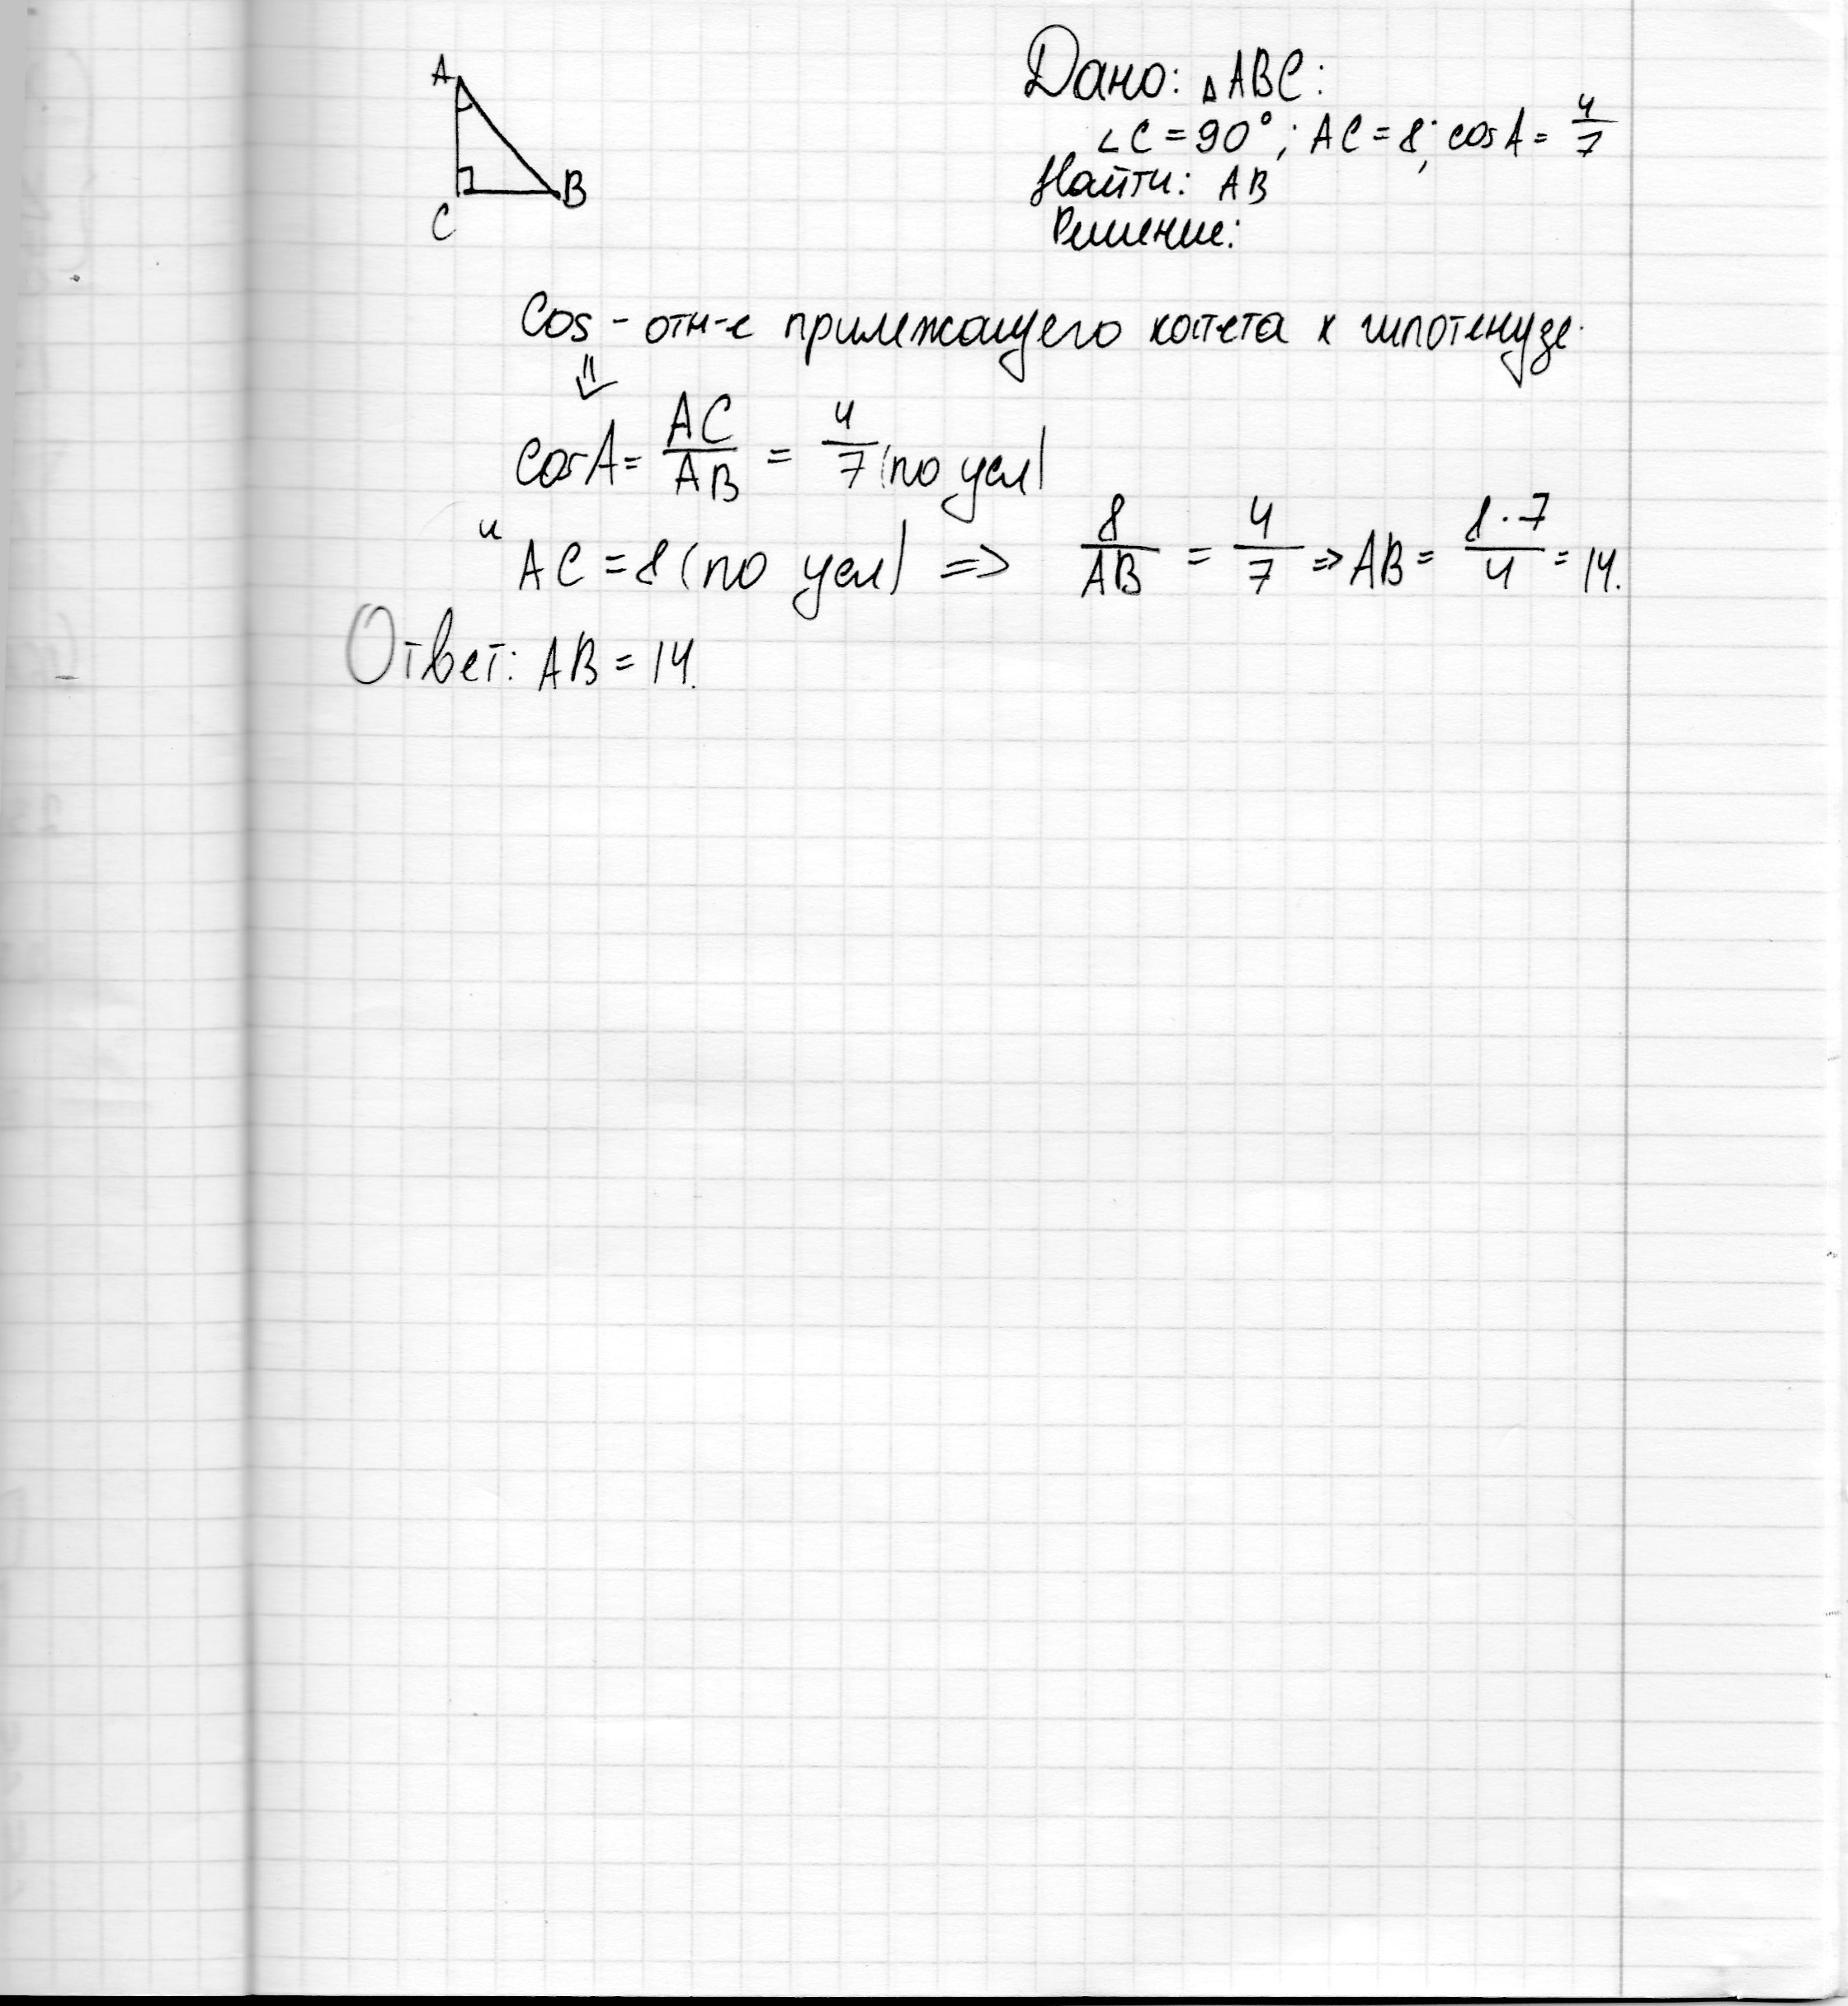 A
B
C
Дано: ΔABC:
∠C = 90°; AC = 8; cos A = 4/7
Найти: AB
Решение:
Cos - отн-е прилежащего катета к гипотенузе.
⇓
cos A = AC/AB = 4/7 (по усл)
и AC = 8 (по усл) => 8/AB = 4/7 => AB = 8·7/4 = 14.
Ответ: AB = 14.